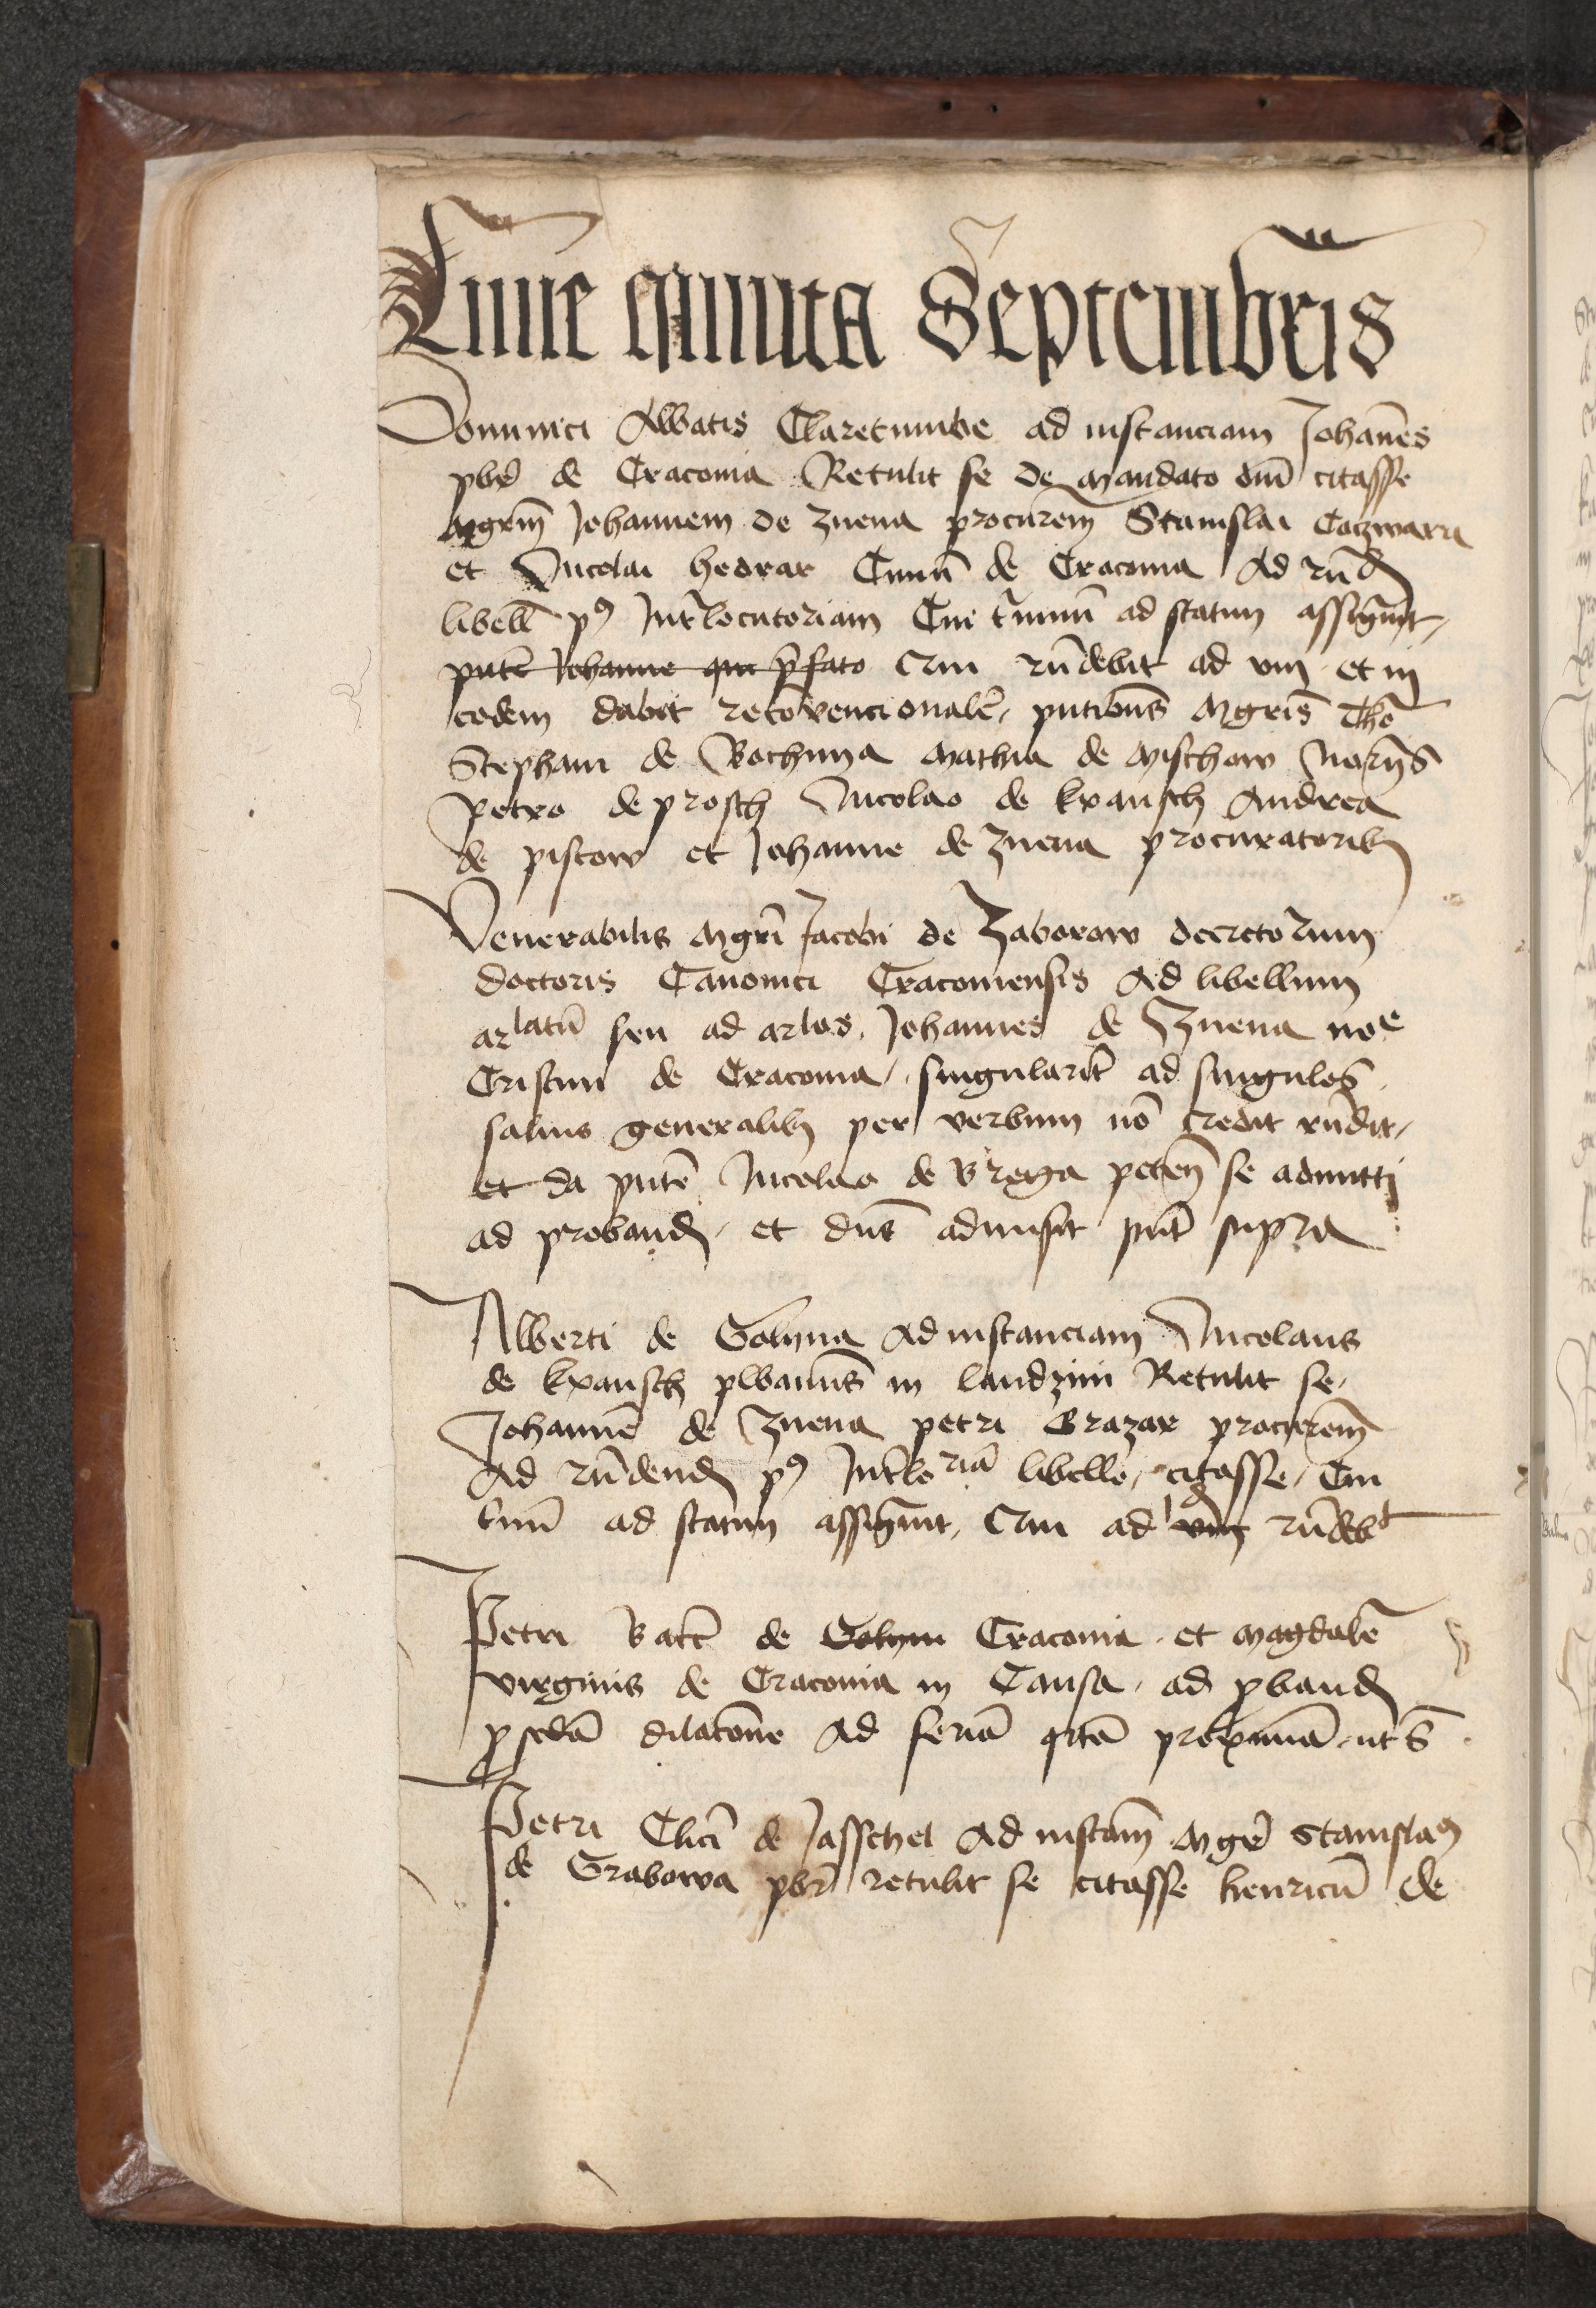 Lune quinta Septembris
Dominici Abbatis Claretumbe ad instanciam Johannes
pbr̄ de Cracovia Retulit se de mandato dnī citasse
Mgrm̄ Johannem de Znena procurem̄ Stanislai Coczwara
et Nicolai hedrar Civiū de Cracovia Ad rn̄d
libell̄ pꝰ Int̄locutoriam Cui t̄minū ad statim assignavit
pn̄te Johanne qui p̄fato Qui rn̄debit ad viii et in
eodem dabit recōvencionalē pn̄tibus Mgris Thē
Stephani de Bochnna Mathia de Mischow Nor̄ijs
Petro de prosch Nicolao de kransch Andrea
de pistow et Johanne de Znena procuratoribꝫ
Venerabilis Mgri Jacobi de Zaborow decretorum
doctoris Canonici Cracoviensis Ad libellum
arlatū seu ad arlos Johannes de Znena noe
Cristini de Cracovia singularit̄ ad singulos
salvis generalibꝫ per verbum nō credit rn̄dit
et da pn̄te Nicolao de Brega peten̄ se admitti
ad proband et dn̄s admisit put̄ supra
Alberti de Golyna Ad instanciam Nicolaus
de kransch plbanus in landzini Retulit se
Johannē de Znena petri Grazar procurem̄
Ad rn̄dend pꝰ Int̄loriā libello citasse Cui
t̄minū ad statim assignavit Qui ad viii rn̄debt
Petri bacc̄ de Golyni Cracovia et Magdalē
virginis de Cracovia in Causa ad pband
p scdā dilacōne Ad feriā qrtā proximā ut s̄
Petri Clici de Jasschel Ad instām Mgr̄ Stanislaꝰ
de Grabowa pbr̄ retulit se citasse henricū de